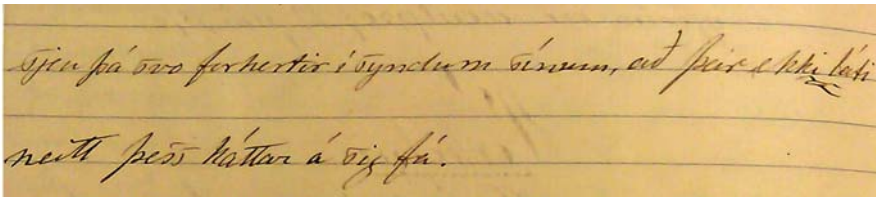 sjeu þá svo forhertir í syndum sínum, að þeir ekki láti
neitt þess háttar á sig fá.